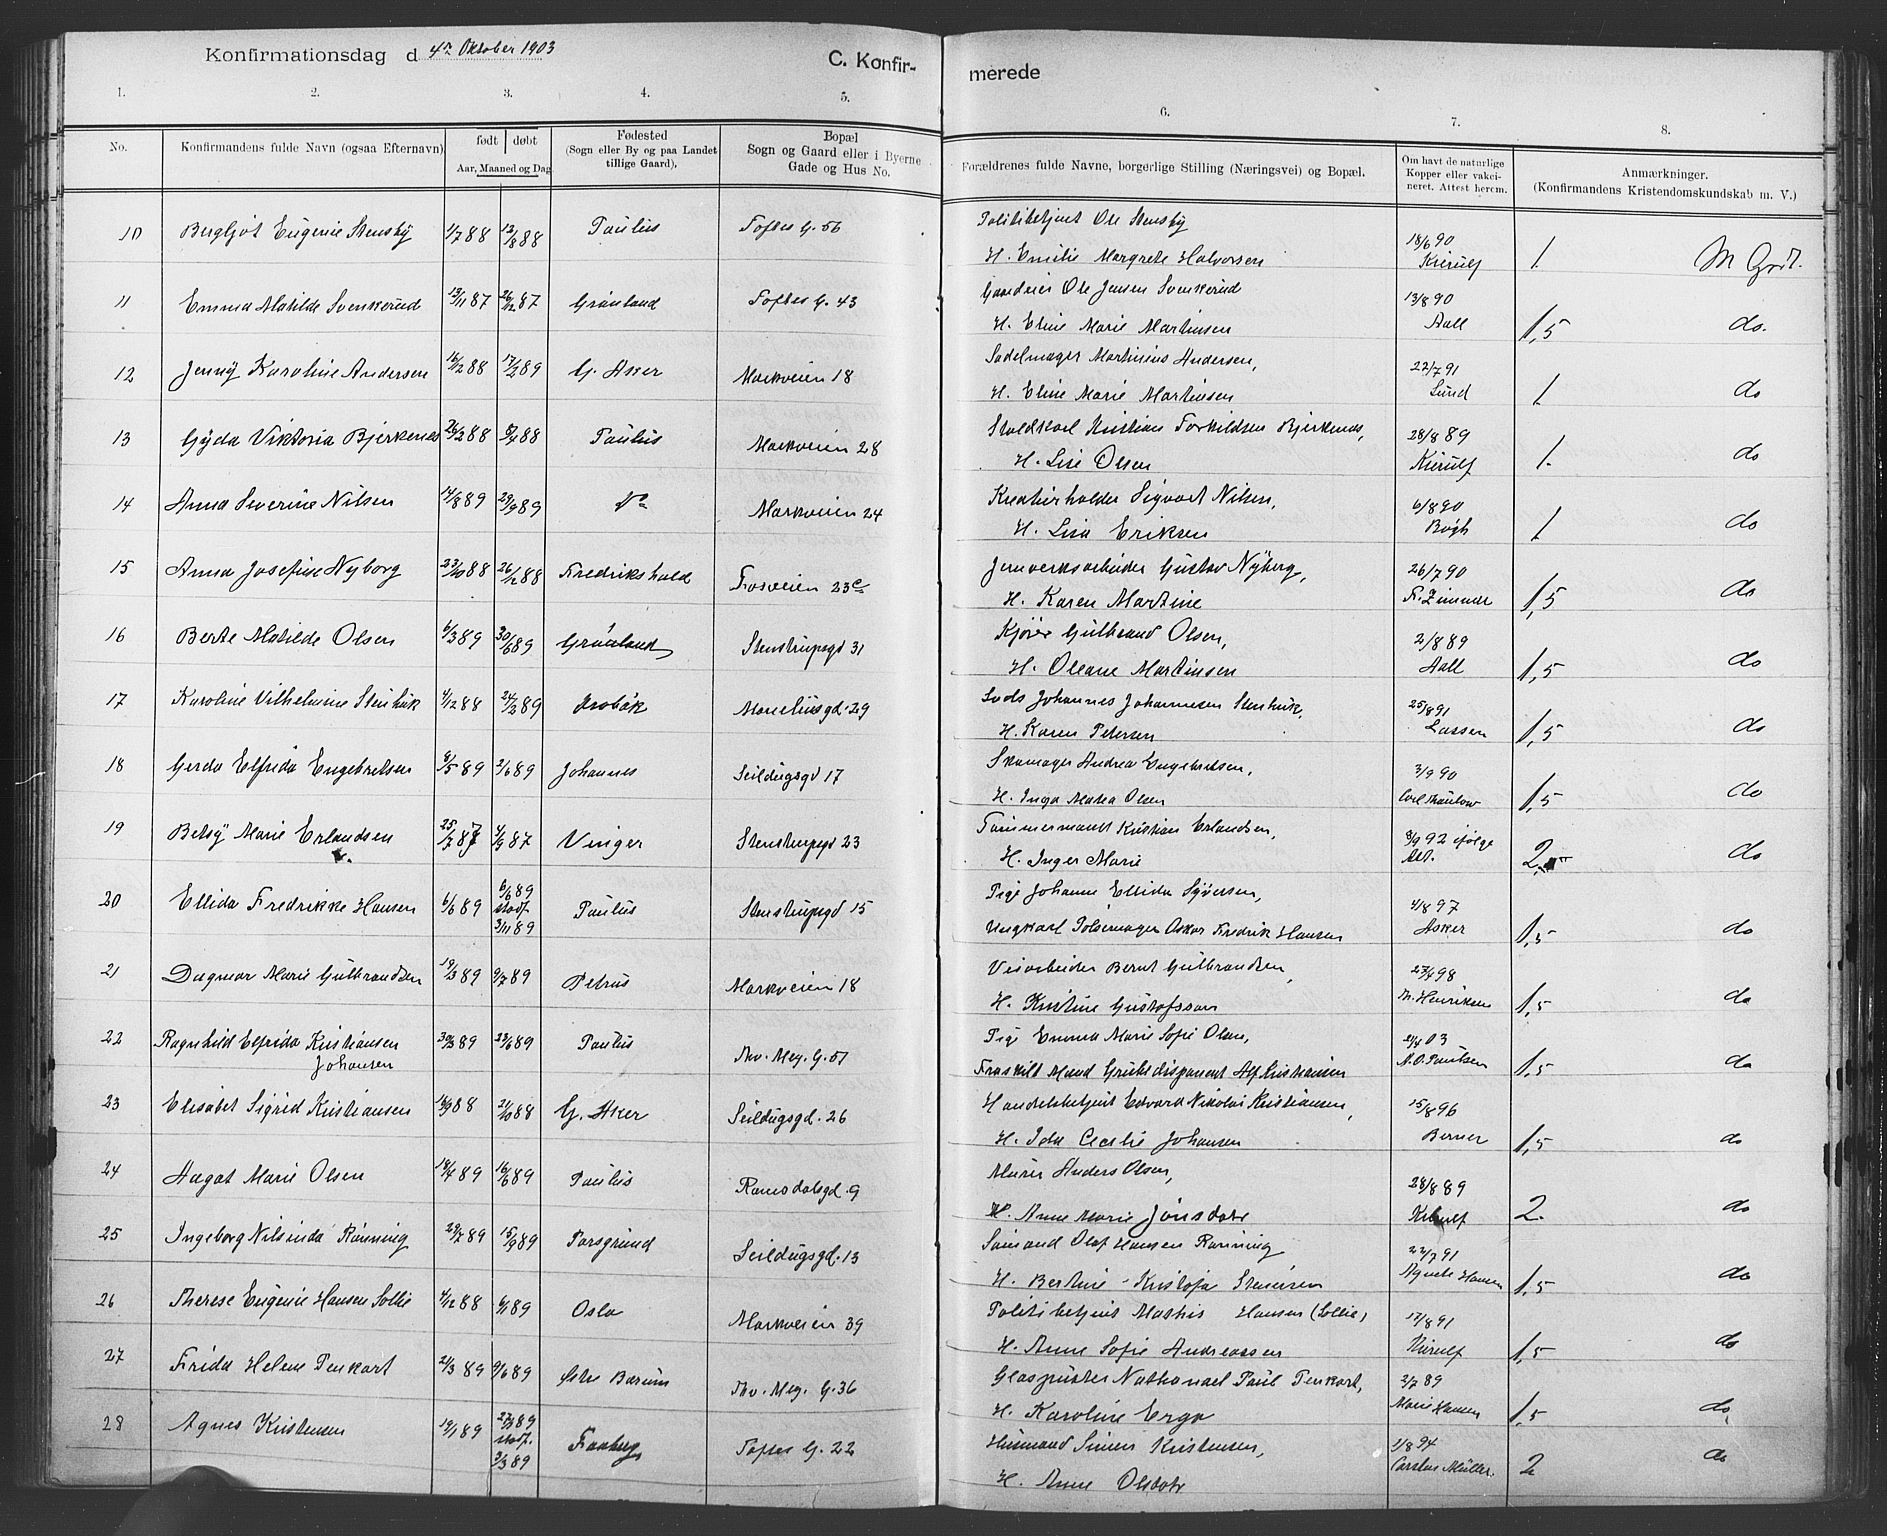 Konfirmationsdag d 4de Oktober 1903
C. Konfirmerede
1. 2. 3. 4. 5. 6. 7. 8.
No. Konfirmandens fulde Navn (ogsaa Efternavn) født døbt Aar, Maaned og Dag Fødested (Sogn eller By og paa Landet tillige Gaard). Bopæl Sogn og Gaard eller i Byerne Gade og Hus No. Forældrenes fulde Navne, borgerlige Stilling (Næringsvei) og Bopæl. Om havt de naturlige Kopper eller vakcineret. Attest herom. Anmærkninger. (Konfirmandens Kristendomskundskab m. V.)
10 Bergljot Eugenie Stensby 1/7 88 12/8 88 Paulus Toftes G. 56 Politibetjent Ole Stensby 18/6 90 1. M Godt.
H. Emilie Margrete Halvorsen Kierulf
11 Emma Matilde Svenkerud 13/11 87 26/12 87 Grønland Toftes G. 43 Gaardeier Ole Jensen Svenkerud 13/8 90 1,5 do.
H. Eline Marie Martinsen Aall
12 Jenny Karoline Andersen 16/12 88 17/2 89 G. Aker Markveien 18 Sadelmager Martinius Andersen, 22/7 91 1. do
H. Eline Marie Martinsen Lund
13 Gyda Viktoria Bjerkenes 26/2 88 8/4 88 Paulus Markveien 28 Staldkarl Kristian Torkildsen Bjerkenes, 28/8 89 1. do
H. Lise Olsen Kierulf
14 Anna Severine Nilsen 14/8 89 29/9 89 Do Markveien 24 Kreaturholder Sigvart Nilsen, 6/8 90 1 do
H. Lisa Eriksen Bøgh
15 Anna Josefine Nyborg 23/10 88 26/12 88 Fredrikshald Fosveien 23c Jernverksarbeider Gustav Nyberg, 26/7 90 1,5 do
H. Karen Martine F. Zimmer
16 Berte Matilde Olsen 6/3 89 30/6 89 Grønland Stenstrupsgd 31 Kjører Gulbrand Olsen, 2/8 89 1,5 do
H. Oleane Martinsen Aall
17 Karoline Vilhelmine Stenhuk 4/12 88 24/2 89 Drøbak Marceliusgd. 29 Lods Johannes Johannesen Stenhuk, 25/8 91 1,5 do
H. Karen Petersen Lassen
18 Gerda Elfrida Engebretsen 8/5 89 2/6 89 Johannes Seildugsgd 17 Skomager Andrea Engebretsen, 3/9 90 1,5 do
H. Inga Matea Olsen Carl Thaulow
19 Betsy Marie Erlandsen 25/7 87 4/9 87 Vinger Stenstrupsgd 23 Tømmermand Kristian Erlandsen, 8/9 92 ifølge 2. do
H. Inger Marie Att.
20 Ellida Fredrikke Hansen 6/6 89 6/6 89 stadf. 3/11 89 Paulus Stenstrupsgd 15 Pige Johanne Ellida Syversen, 4/8 97 1,5 do
Ungkarl Pølsemager Oskar Fredrik Hansen Asker
21 Dagmar Marie Gulbrandsen 19/3 89 9/7 89 Petrus Markveien 18 Veiarbeider Bernt Gulbrandsen, 27/4 98 1,5 do
H. Kristine Gustafsson Th. Henriksen
22 Ragnhild Elfrida Kristiansen 30/3 89 23/6 89 Paulus Thv. Mey. G. 51 Pige Emma Marie Sofie Olsen, 21/4 03 1,5 do
Johansen Fraskilt Mand Grubedisponent Alf Kristiansen N. O. Paulsen
23 Elisabet Sigrid Kristiansen 14/9 88 21/10 88 G. Aker Seildugsgd. 26 Handelsbetjent Edvard Nikolai Kristiansen, 15/8 96 1,5 do
H. Ida Cecilie Johansen Berner
24 Aagot Marie Olsen 14/4 89 16/6 89 Paulus Romsdalsgd. 9 Murer Anders Olsen, 28/8 89 2. do
H. Anne Marie Jonsdatr Kierulf
25 Ingeborg Nilsinda Rønning 29/7 89 15/9 89 Porsgrund Seildugsgd. 13 Sømand Olaf Hansen Rønning 22/7 91 1,5 do
H. Bertine Kristofa Stensen Agnete Hansen
26 Therese Eugenie Hansen Sollie 4/12 88 6/1 89 Oslo Markveien 39 Politibetjent Mathis Hansen (Sollie) 17/8 91 1,5 do
H. Anne Sofie Andreassen Kierulf
27 Frida Helene Penkert 21/3 89 9/6 89 Østre Bærum Thv. Mey. G. 36 Glaspuster Nathanael Paul Penkert, 2/7 89 1,5 do,
H. Karoline Erga Marie Hansen
28 Agnes Kristensen 19/1 89 27/1 89 stadf. 3/3 89 Faaberg Toftes G. 22 Husmand Simen Kristensen, 1/8 94 2 do
H. Anne Olsdatr Carsten Müller.